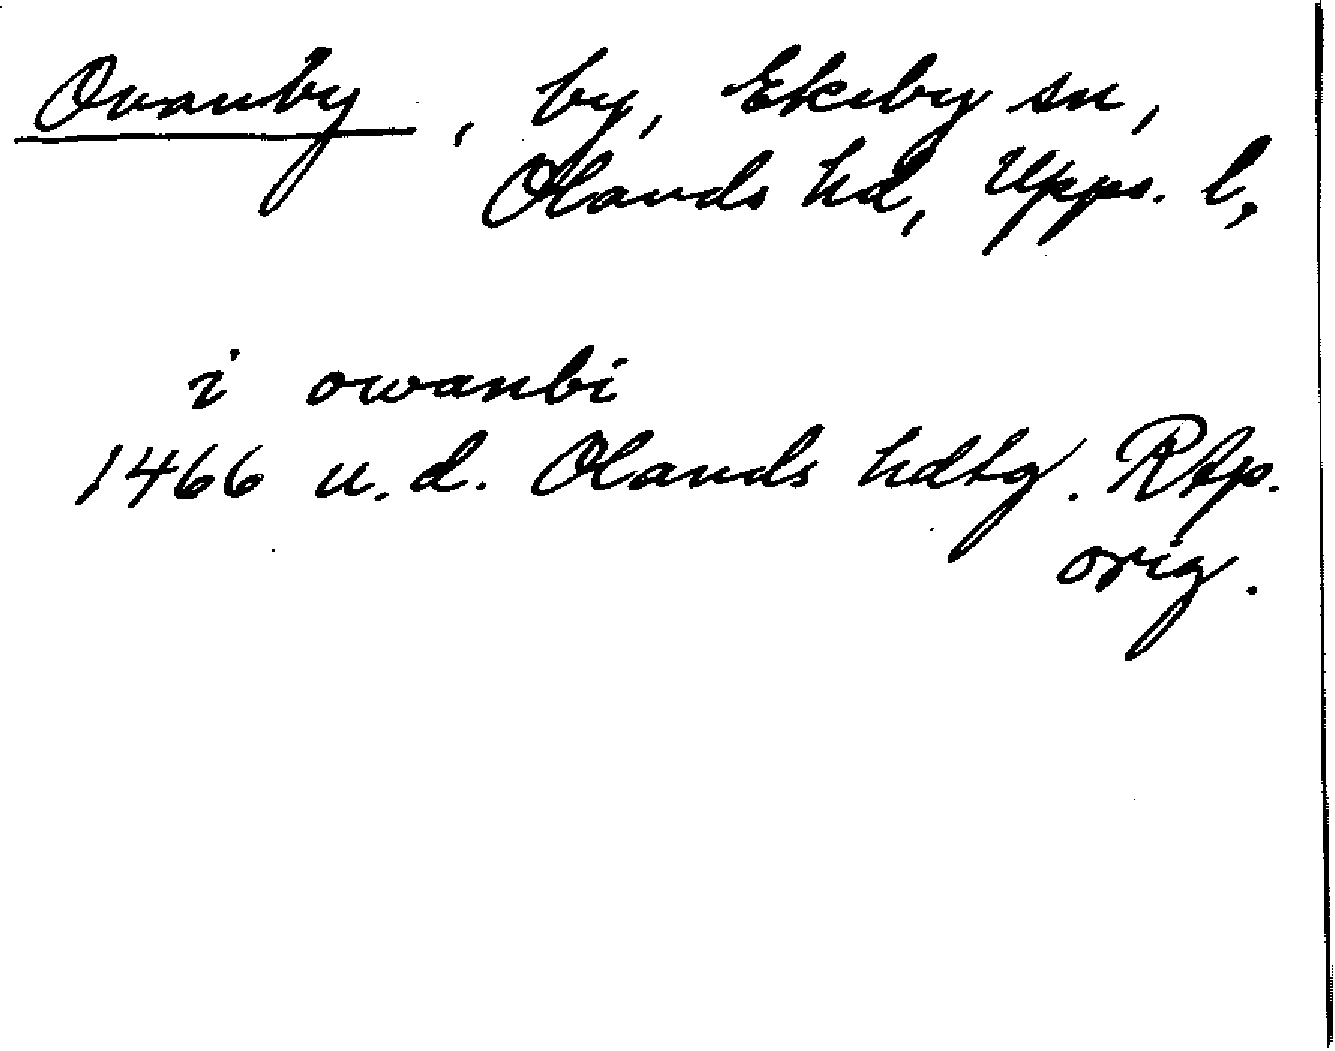 Ovanby, by, Ekeby sn,
Olands hd, Upps. l,
i owanbi
1466 u.d. Olands hdtg. Rap.
orig.